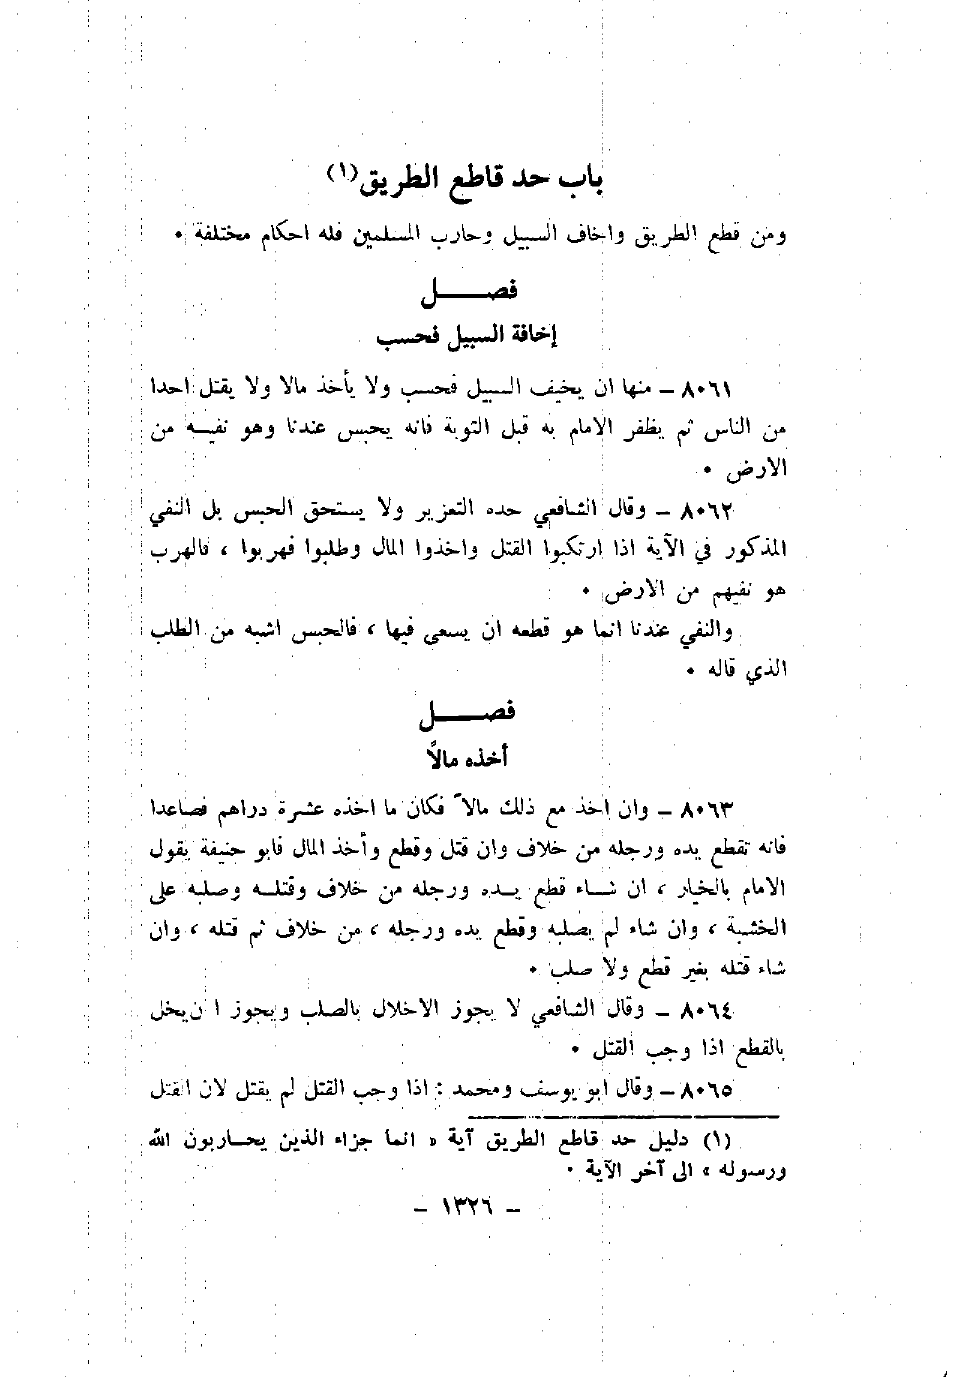 باب حد قاطع الطريق(١)
ومن قطع الطريق واخاف السبيل وحارب المسلمين فله احكام مختلفة ٠
فصـــــل
إخافة السبيل فحسب
٨٠٦١ – منها ان يخيف السبيل فحسب ولا يأخذ مالا ولا يقتل احدا
من الناس ثم يظفر الامام به قبل التوبة فانه يحبس عندنا وهو نفيـــه من
الارض ٠
٨٠٦٢ – وقال الشافعي حده التعزير ولا يستحق الحبس بل النفي
المذكور في الآية اذا ارتكبوا القتل واخذوا المال وطلبوا فهربوا ، فالهرب
هو نفيهم من الارض ٠
والنفي عندنا انما هو قطعه ان يسعى فيها ، فالحبس اشبه من الطلب
الذي قاله ٠
فصـــــل
أخذه مالاً
٨٠٦٣ – وان اخذ مع ذلك مالاً فكان ما اخذه عشرة دراهم فصاعدا
فانه تقطع يده ورجله من خلاف وان قتل وقطع وأخذ المال فابو حنيفة يقول
الامام بالخيار ، ان شــاء قطع يــده ورجله من خلاف وقتلــه وصلبه على
الخشبة ، وان شاء لم يصلبه وقطع يده ورجله ، من خلاف ثم قتله ، وان
شاء قتله بغير قطع ولا صلب ٠
٨٠٦٤ – وقال الشافعي لا يجوز الاخلال بالصلب ويجوز ا ن يخل
بالقطع اذا وجب القتل ٠
٨٠٦٥ – وقال ابو يوسف ومحمد : اذا وجب القتل لم يقتل لان القتل
(١) دليل حد قاطع الطريق آية « انما جزاء الذين يحــاربون الله
ورسوله » الى آخر الآية ٠
– ١٣٢٦ –